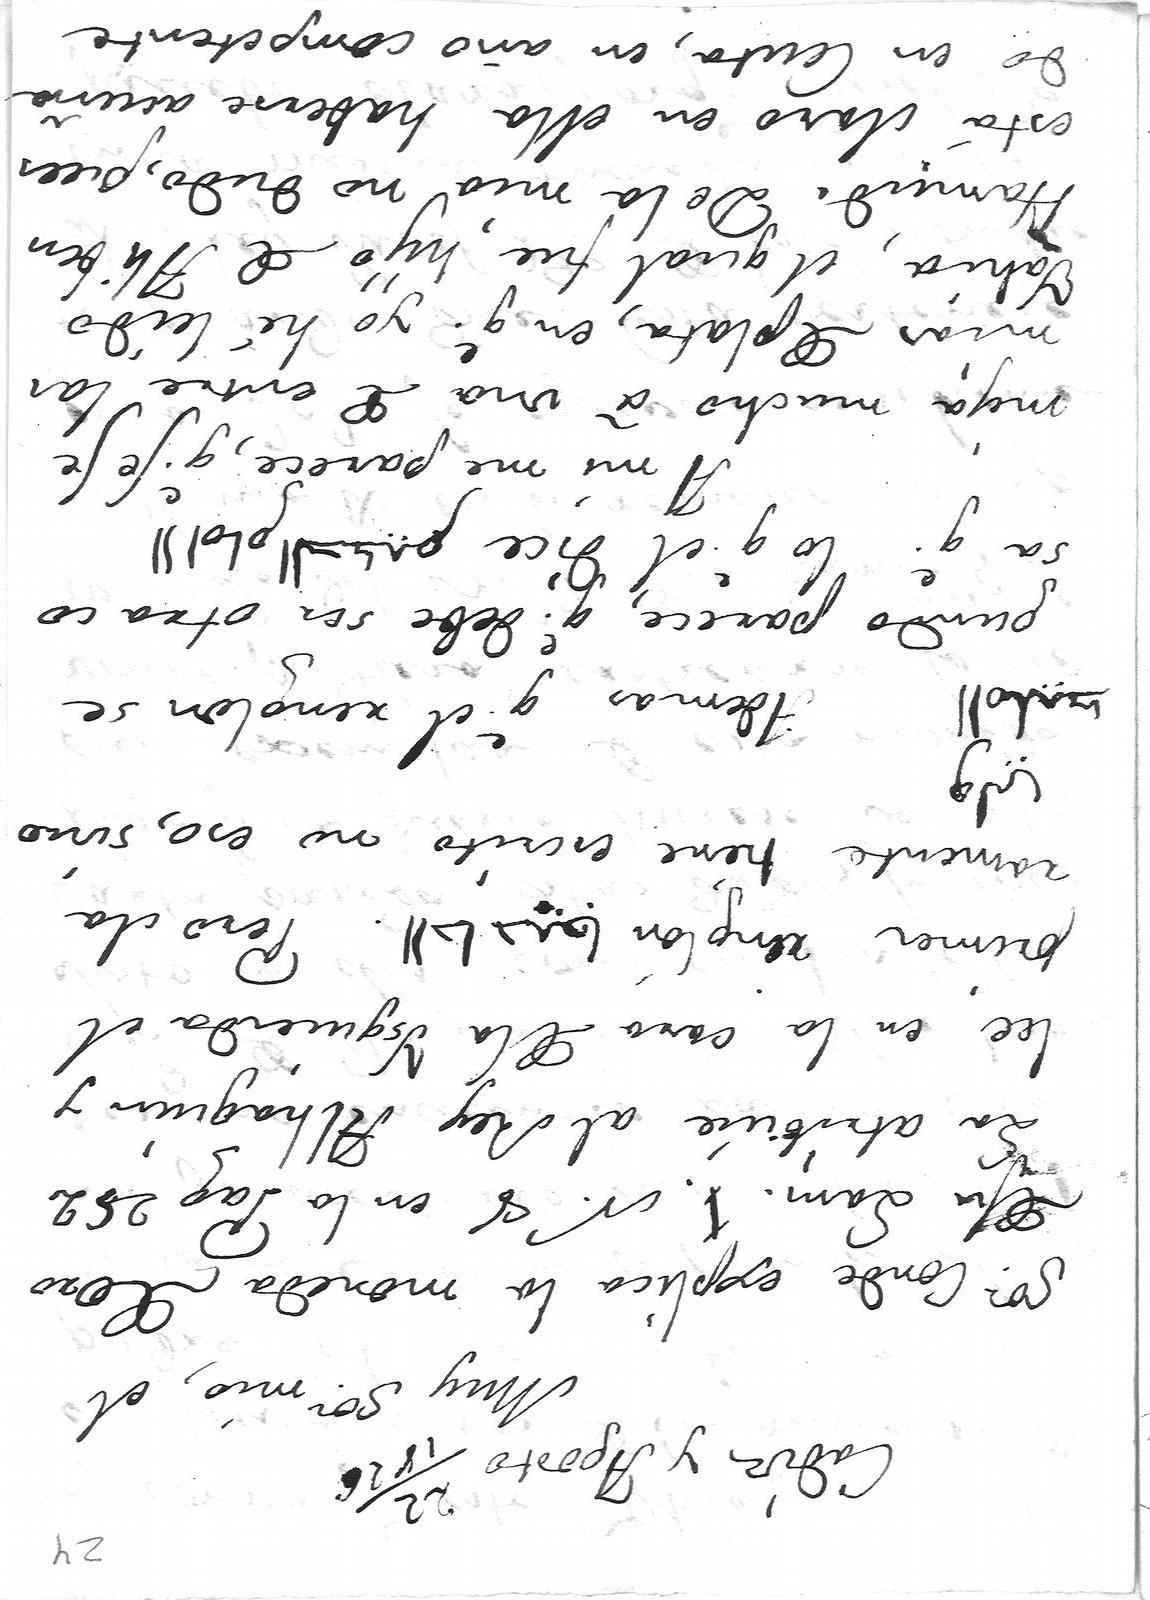 24
Cadiz y Agosto 22/1826
Muy Sor. mio, el
Sor. Conde explica la moneda de oro
Lam. 1. N. 8 en la Pag 252
La atribúie al Rey Alhaquem y
lee en la cara de la Ysquierda el
primer renglón الامام. Pero cla
ramente tiene escrito no eso, sino
Ademas q.e el renglon se
gundo parece, q.e debe ser otra co
sa q.e lo q.e el dice
A mi me parece, q.e esse
meja mucho à una de entre las
mias de plata, en q.e yo hé leido
Yahia, el qual fue hijo de Ali ben
Hamud. De la mia no dudo, pues
està claro en ella haberse acuña
do en Ceuta, en año competente